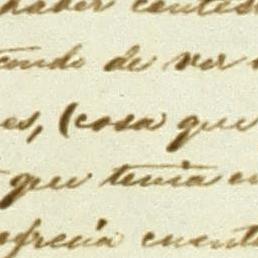 haber contes
tando de ver
es, (cosa que
que tenia en
ofrecia cuenta